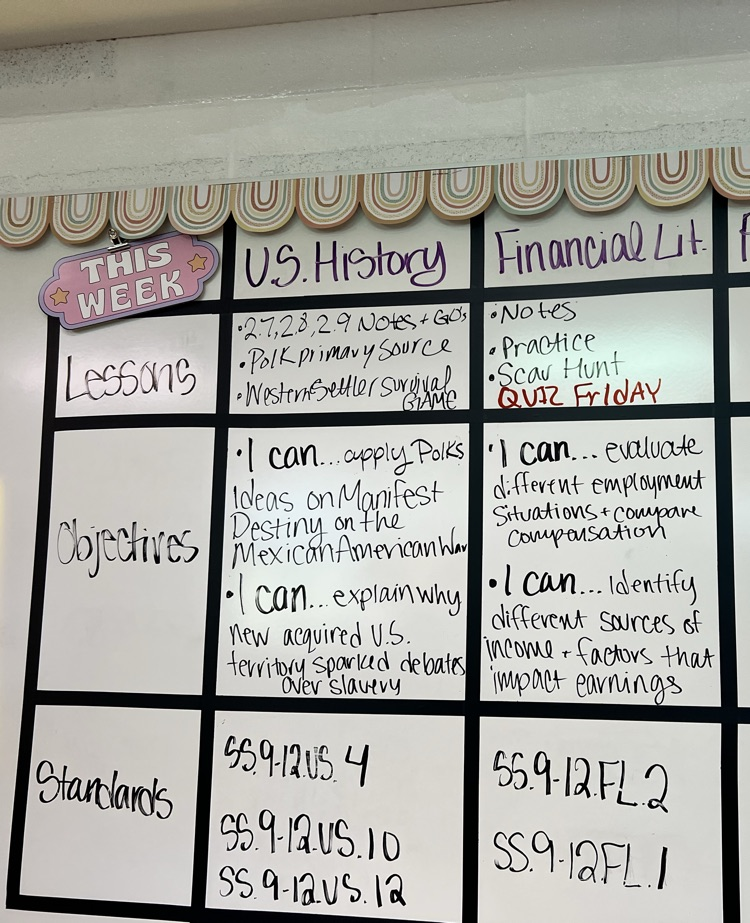 THIS
WEEK
U.S. History
Financial Lit.
Lessons
•2.7, 2.8, 2.9 Notes + GO's
•Polk primary Source
•Western Settler Survival
GAME
•Notes
•Practice
•Scav Hunt
QUIZ FrIdAY
Objectives
•I can... apply Polks
Ideas on Manifest
Destiny on the
Mexican American War
•I can... explain why
new acquired U.S.
territory sparked debates
over slavery
•I can... evaluate
different employment
Situations + compare
compensation
•I can... Identify
different sources of
income + factors that
impact earnings
Standards
SS.9-12.US.4
SS.9-12.US.10
SS.9-12.US.12
SS.9-12.FL.2
SS.9-12.FL.1